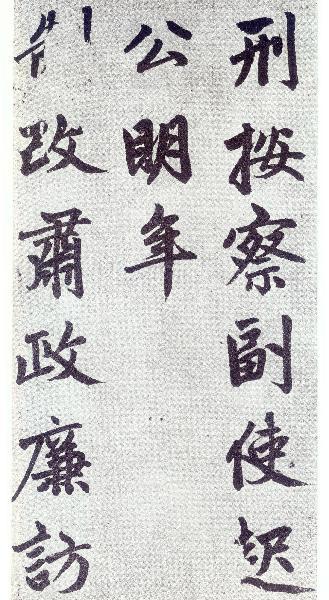 刑按察副使起
公明年
制改肅政廉訪